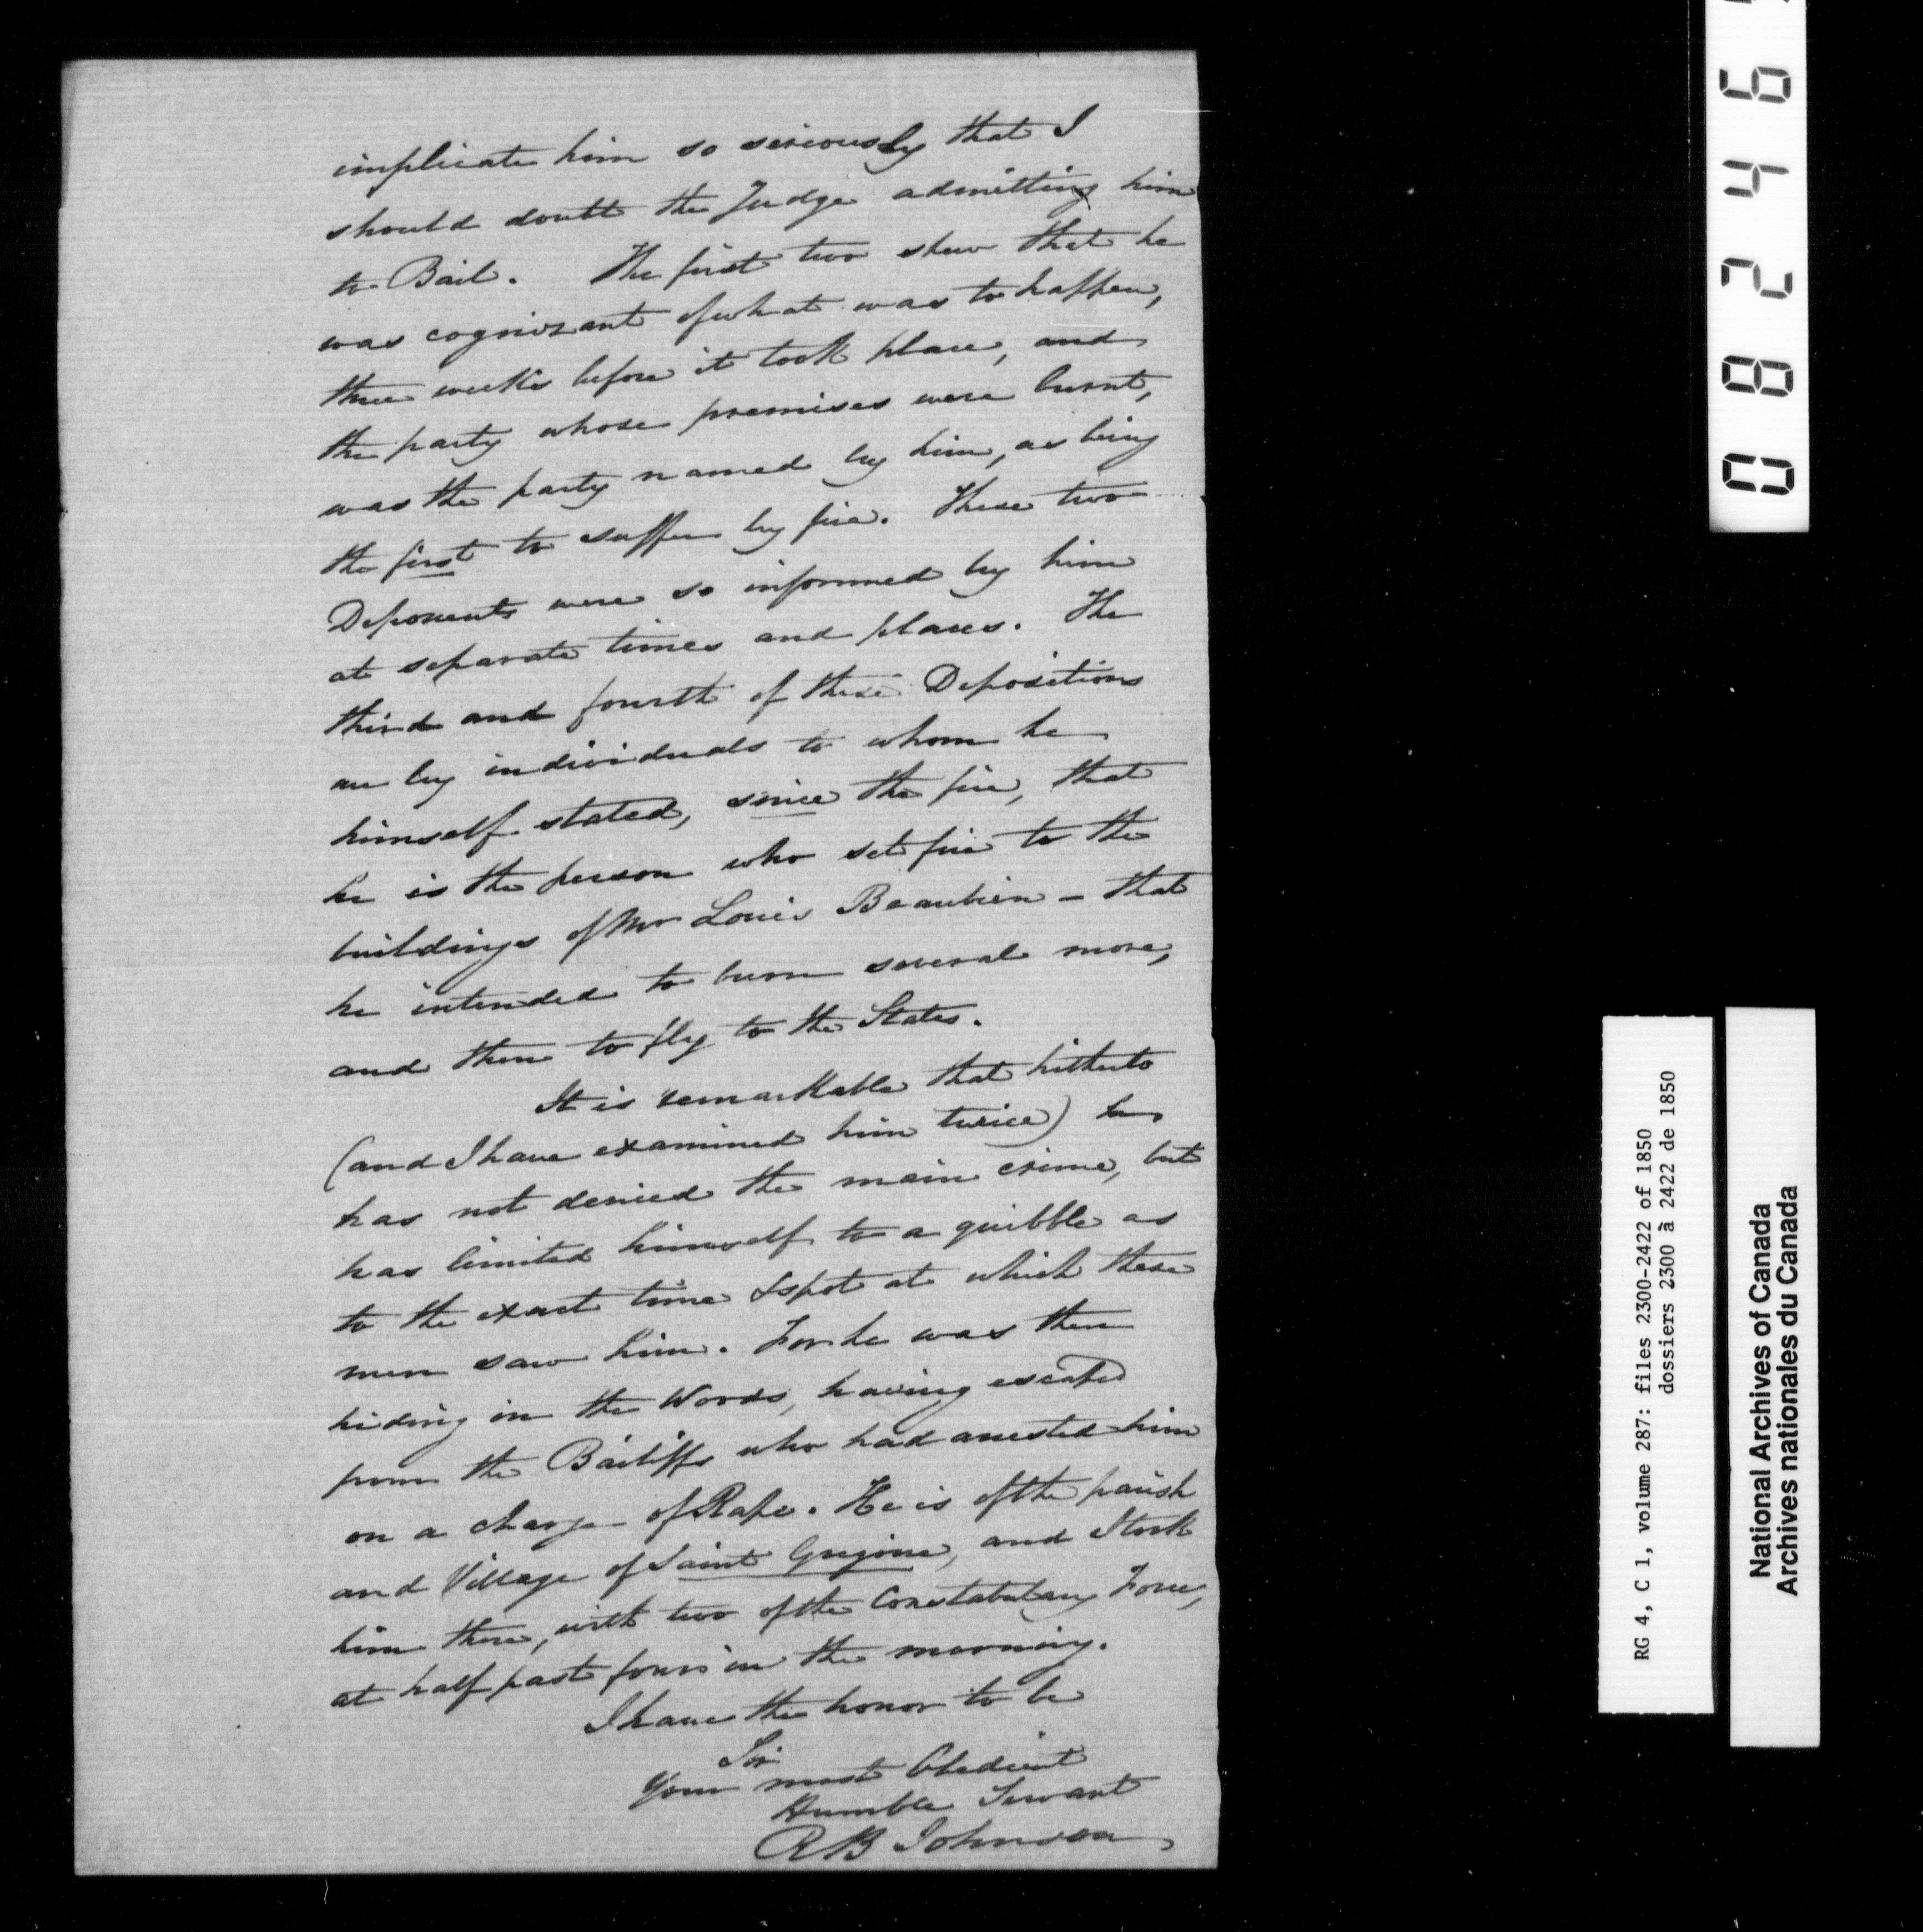 implicate him so seriously that I
should doubt the Judge admitting him
to Bail. The first two shew that he
was cognizant of what was to happen,
three weeks before it took place, and
the party whose premises were burnt,
was the party named by him, as being
the first to suffer by fire. These two
Deponents were so informed by him
at separate times and places. The
third and fourth of these Depositions
are by individuals to whom he
himself stated, since the fire, that
he is the person who set fire to the
buildings of Mr Louis Beaubien - that
he intended to burn several more,
and then to fly to the States.
It is remarkable that hitherto
(and I have examined him twice) he
has not denied the main crime, but
has limited himself to a quibble as
to the exact time & spot at which these
men saw him. For he was then
hiding in the Woods, having escaped
from the Bailiffs who had arrested him
on a charge of Rape. He is of the parish
and Village of Saint Gregoire, and I took
him there, with two of the Constabulary Force,
at half past four in the morning.
I have the honor to be
Sir
Your most Obedient
Humble Servant
R B Johnson
08246
RG 4, C 1, volume 287: files 2300-2422 of 1850
dossiers 2300 à 2422 de 1850
National Archives of Canada
Archives nationales du Canada